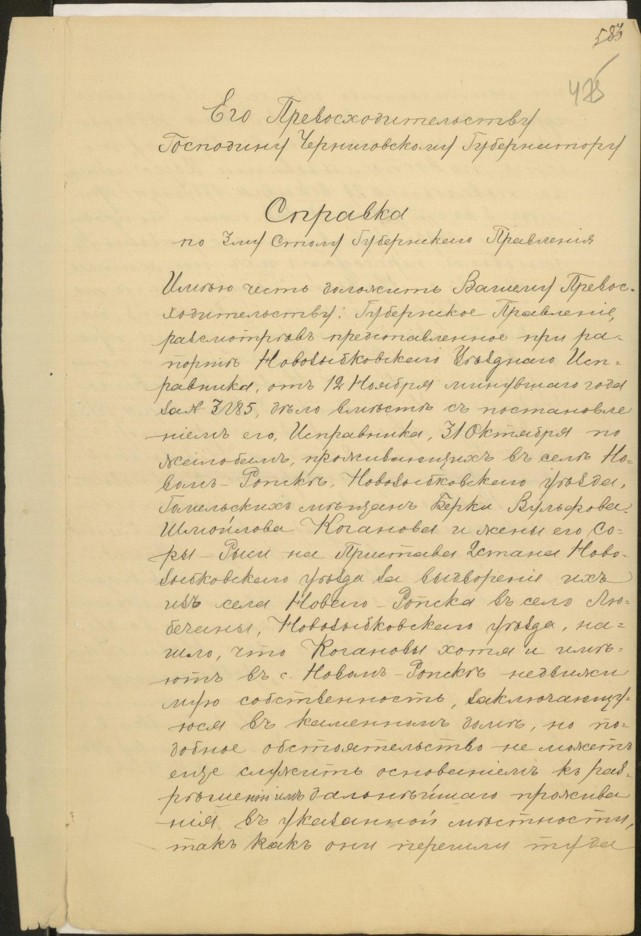 583
475
Его Превосходительству
Господину Черниговскому Губернатору
Справка
по 3му Столу Губернскаго Правленія
Имѣю честь доложить Вашему Превос-
ходительству: Губернское Правленіе,
разсмотрѣвъ представленное при ра-
портѣ Новозыбковскаго Уѣзднаго Исп-
равника, отъ 12 Ноября минувшаго года
за № 3185, дѣло вмѣстѣ съ постановле
ніемъ его, Исправника, 31 Октября по
жалобамъ, проживающихъ въ селѣ Но-
вомъ-Ропскѣ, Новозыбковскаго уѣзда,
Гомельскихъ мѣщанъ Берки Вульфова-
Шмойлова Коганова и жены его Со-
ры-Раси на Пристава 2 стана Ново-
зыбковскаго уѣзда за выдвореніе ихъ
изъ села Новаго-Ропска въ село Лю-
бечаны, Новозыбковскаго уѣзда, на-
шло, что Когановы хотя и имѣ-
ютъ въ с. Новомъ-Ропскѣ недвижи
мую собственность, заключающу-
юся въ каменномъ домѣ, но по-
добное обстоятельство не можетъ
еще служить основаніемъ къ раз-
рѣшенію имъ дальнѣйшаго прожива
нія въ указанной мѣстности,
такъ какъ они перешли туда